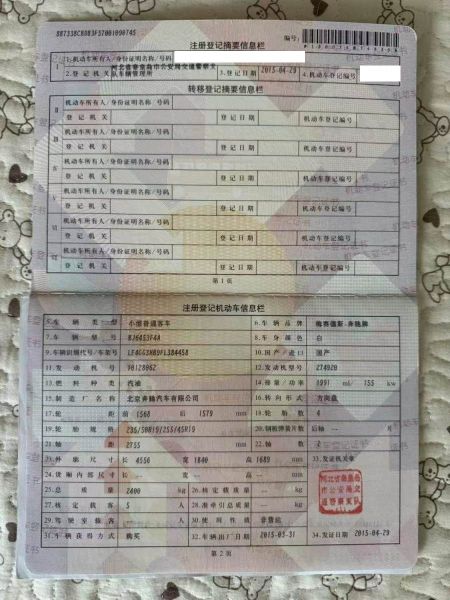 注册登记摘要信息栏
编号:
1.机动车所有人/身份证明名称/号码
2.登记机关 河北省秦皇岛市公安局交通警察支队车辆管理所 3.登记日期 2015-04-29 4.机动车登记编号
转移登记摘要信息栏
Ⅱ 机动车所有人/身份证明名称/号码
登记机关 登记日期 机动车登记编号
Ⅲ 机动车所有人/身份证明名称/号码
登记机关 登记日期 机动车登记编号
Ⅳ 机动车所有人/身份证明名称/号码
登记机关 登记日期 机动车登记编号
Ⅴ 机动车所有人/身份证明名称/号码
登记机关 登记日期 机动车登记编号
Ⅵ 机动车所有人/身份证明名称/号码
登记机关 登记日期 机动车登记编号
Ⅶ 机动车所有人/身份证明名称/号码
登记机关 登记日期 机动车登记编号
第1页
注册登记机动车信息栏
5.车辆类型 小型普通客车 6.车辆品牌 梅赛德斯-奔驰牌
7.车辆型号 BJ6453F4A 8.车身颜色 白
9.车辆识别代号/车架号 LE4GG8HB9FL384458 10.国产/进口 国产
11.发动机号 70128962 12.发动机型号 274920
13.燃料种类 汽油 14.排量/功率 1991 ml/ 155 kw
15.制造厂名称 北京奔驰汽车有限公司 16.转向形式 方向盘
17.轮距 前 1568 后 1579 mm 18.轮胎数 4
19.轮胎规格 235/50R19/255/45R19 20.钢板弹簧片数 后轴 -- 片
21.轴距 2755 mm 22.轴数 2
23.外廓尺寸 长 4556 宽 1840 高 1689 mm 33.发证机关章
24.货厢内部尺寸 长 -- 宽 -- 高 -- mm
河北省秦皇岛市公安局交通警察支队
25.总质量 2400 kg 26.核定载质量 -- kg
27.核定载客 5 人 28.准牵引总质量 -- kg
29.驾驶室载客 -- 人 30.使用性质 非营运
31.车辆获得方式 购买 32.车辆出厂日期 2015-03-31 34.发证日期 2015-04-29
第2页